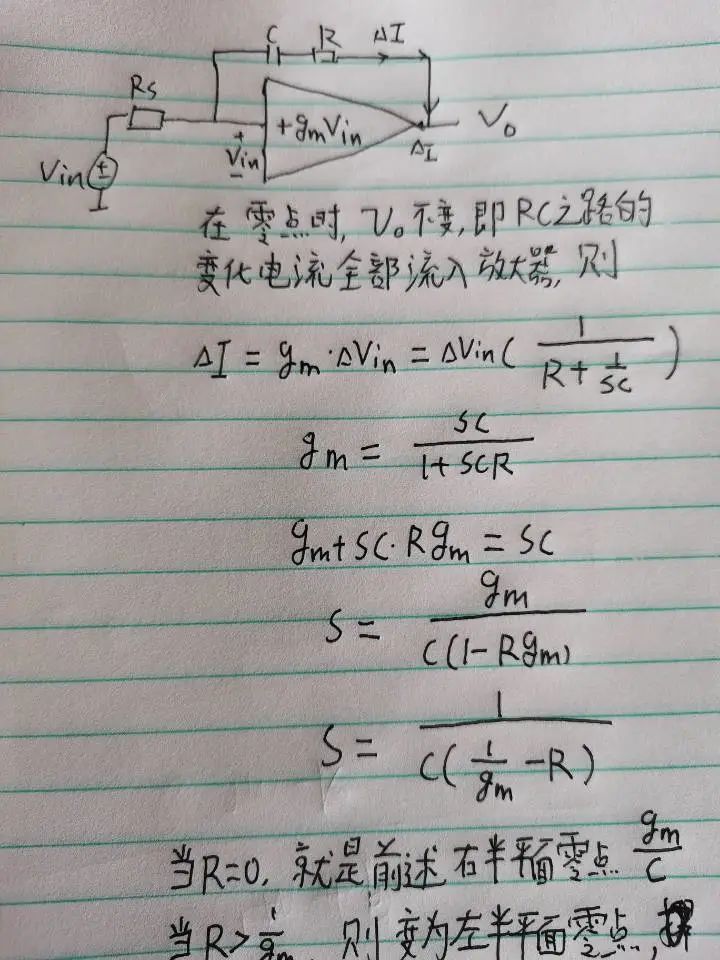 C R ΔI
Rs
+gmVin
Vo
+
Vin
-
ΔI
Vin
在零点时, Vo不变, 即RC之路的
变化电流全部流入放大器, 则
ΔI = gm·ΔVin = ΔVin( 1 / (R + 1/SC) )
gm = SC / (1+SCR)
gm+SC·Rgm = SC
S = gm / C(1-Rgm)
S = 1 / C(1/gm - R)
当R=0, 就是前述右半平面零点 gm/C
当R>1/gm, 则变为左半平面零点,